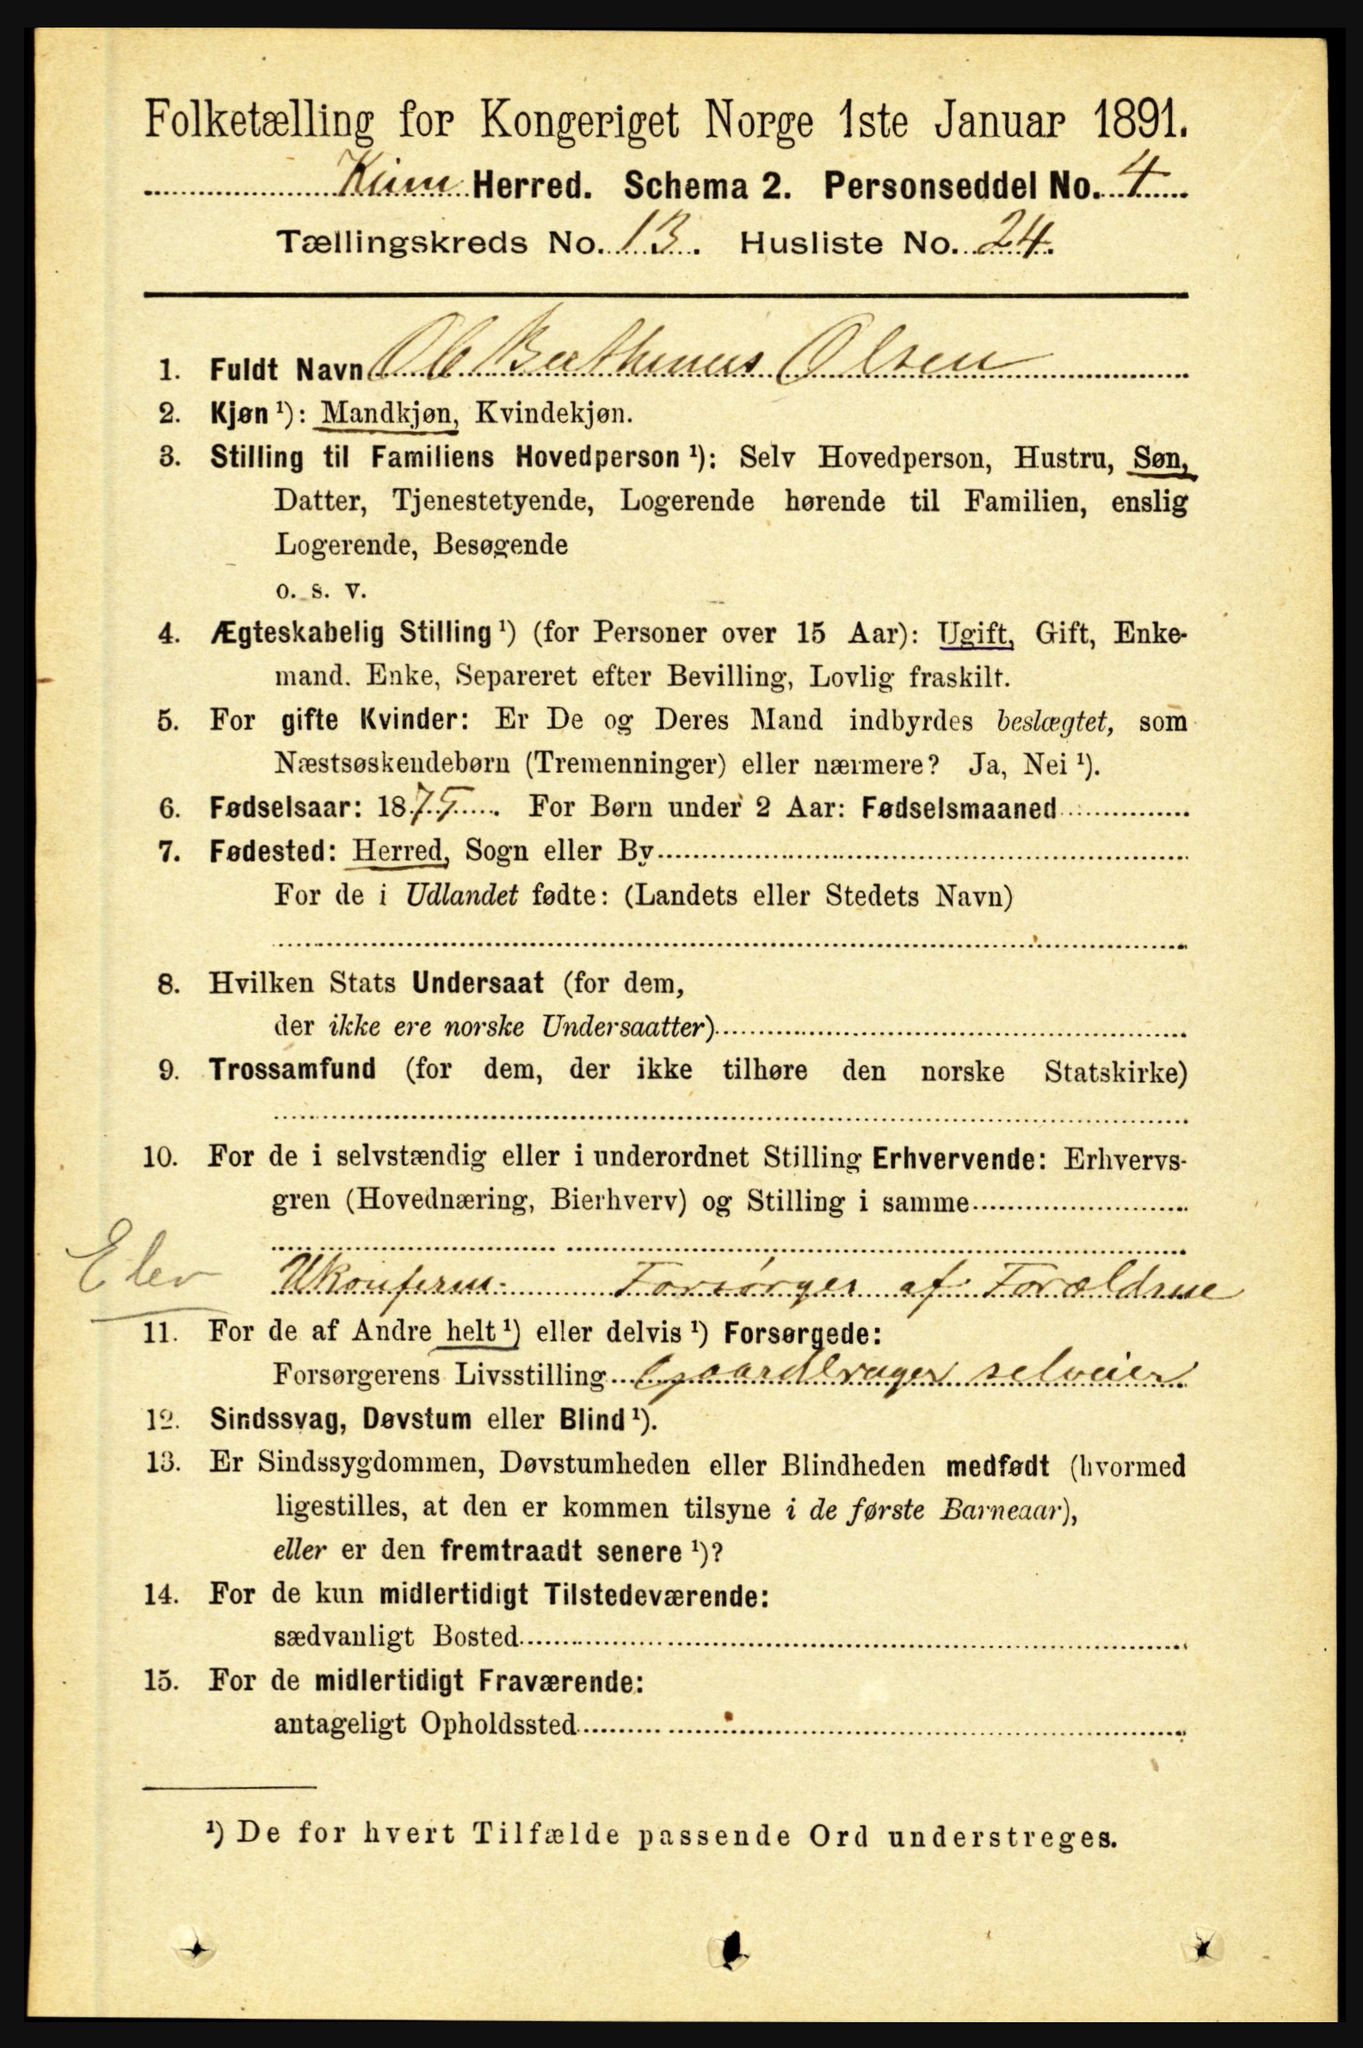 Folketælling for Kongeriget Norge 1ste Januar 1891.
Kinn Herred. Schema 2. Personseddel No. 4
Tællingskreds No. 13. Husliste No. 24.
1. Fuldt Navn Ole Berthinius Olsen
2. Kjøn ¹): Mandkjøn, Kvindekjøn.
3. Stilling til Familiens Hovedperson ¹): Selv Hovedperson, Hustru, Søn,
Datter, Tjenestetyende, Logerende hørende til Familien, enslig
Logerende, Besøgende
o. s. v.
4. Ægteskabelig Stilling ¹) (for Personer over 15 Aar): Ugift, Gift, Enke-
mand, Enke, Separeret efter Bevilling, Lovlig fraskilt.
5. For gifte Kvinder: Er De og Deres Mand indbyrdes beslægtet, som
Næstsøskendebørn (Tremenninger) eller nærmere? Ja, Nei ¹).
6. Fødselsaar: 1875. For Børn under 2 Aar: Fødselsmaaned
7. Fødested: Herred, Sogn eller By
For de i Udlandet fødte: (Landets eller Stedets Navn)
8. Hvilken Stats Undersaat (for dem,
der ikke ere norske Undersaatter)
9. Trossamfund (for dem, der ikke tilhøre den norske Statskirke)
10. For de i selvstændig eller i underordnet Stilling Erhvervende: Erhvervs-
gren (Hovednæring, Bierhverv) og Stilling i samme
Elev Ukonferm. Forsørges af Forældrne
11. For de af Andre helt ¹) eller delvis ¹) Forsørgede:
Forsørgerens Livsstilling Gaardbruger selveier
12. Sindssvag, Døvstum eller Blind ¹).
13. Er Sindssygdommen, Døvstumheden eller Blindheden medfødt (hvormed
ligestilles, at den er kommen tilsyne i de første Barneaar),
eller er den fremtraadt senere ¹)?
14. For de kun midlertidigt Tilstedeværende:
sædvanligt Bosted
15. For de midlertidigt Fraværende:
antageligt Opholdssted
¹) De for hvert Tilfælde passende Ord understreges.